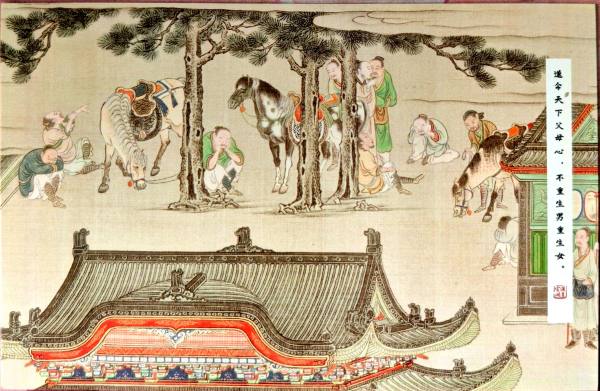 遂令天下父母心，不重生男重生女。